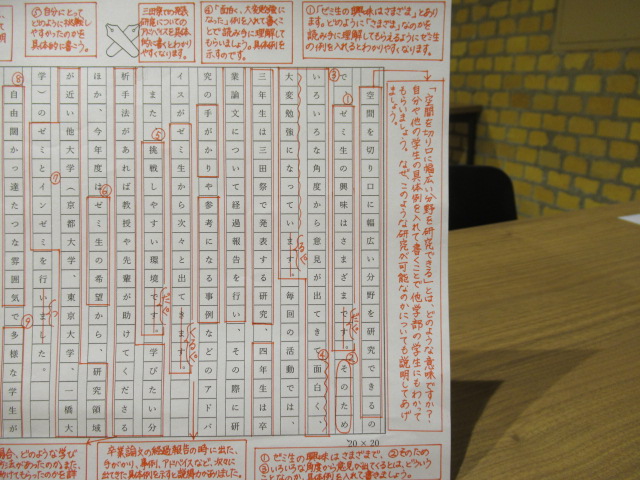 ①「ゼミ生の興味はさまざま」とあり
ます。どのように「さまざま」なのかを
読み手に理解してもらえるようにゼミ生
の例を入れるとわかりやすくなります。
④「面白く、大変勉強に
なった」例を入れて書くこ
とで読み手に理解して
もらいましょう。具体例を
示すのです。
三田祭での発表
研究についての
アドバイスが具体
的に書くとわかり
やすくなります。
⑤自分にとって
どのように挑戦し
やすかったのかを
具体的に書こう。
「空間を切り口に幅広い分野を研究できる」とは、どのような意味ですか？
自分や他の学生の具体例を入れて書くことで他学部の学生にもわかって
もらいましょう。なぜ、このような研究が可能なのかについても説明してあげ
ましょう。
空間を切り口に幅広い分野を研究できるの
で、ゼミ生の興味はさまざまです。そのため
いろいろな角度から意見が出てきて面白く、
大変勉強になっています。毎回の活動では、
三年生は三田祭で発表する研究、四年生は卒
業論文について経過報告を行い、その際に研
究の手がかりや参考になる事例などのアドバ
イスがゼミ生から次々と出てきます。
また、挑戦しやすい環境です。学びたい分
析手法があれば教授や先輩が助けてくださる
ほか、今年度はゼミ生の希望から、研究領域
が近い他大学（京都大学、東京大学、一橋大
学）のゼミとインゼミを行いました。
自由闊かっ達たつな雰囲気で多様な学生が
20×20
①ゼミ生の興味はさまざまで、②そのため
③いろいろな角度から意見が出てくるとは、どういう
ことなのか、具体例を入れて書きましょう。
卒業論文の経過報告の時に出た、
手がかり、事例、アドバイスなど、次々に
出てきた具体例を示すと説得力がありました。